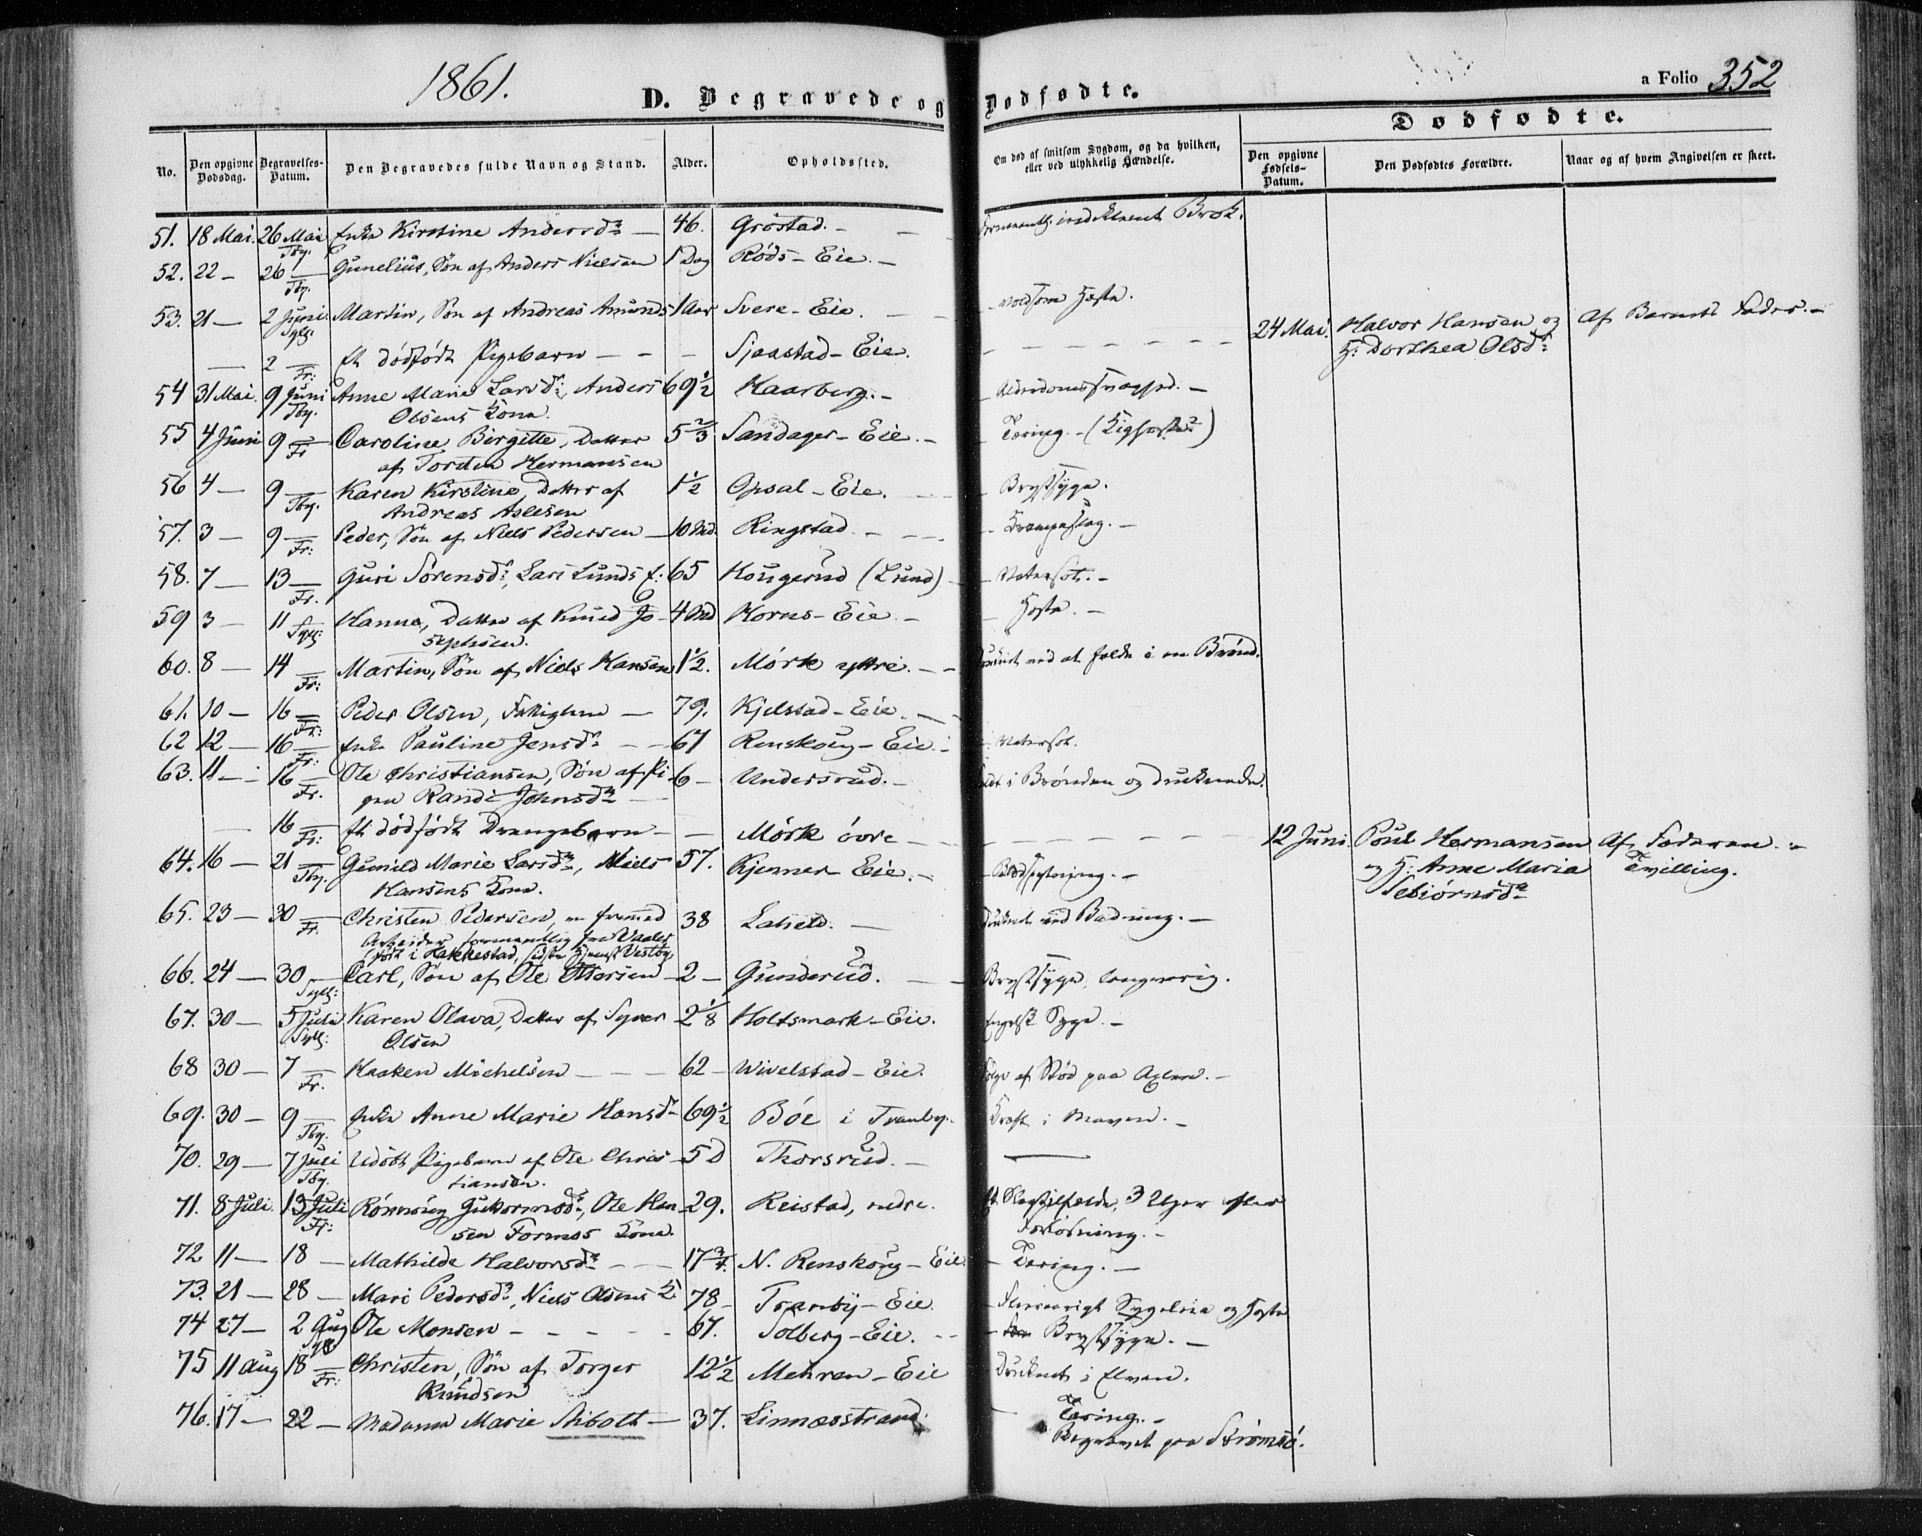 1861.
D. Begravede og Dødfødte.
a Folio 352
Dødfødte.
No. Den opgivne Dødsdag. Begravelses-Datum. Den Begravedes fulde Navn og Stand. Alder. Opholdssted. Om død af smitsom Sygdom, og da hvilken, eller ved ulykkelig Hændelse. Den opgivne Fødsels-Datum. Den Dødfødtes Forældre. Naar og af hvem Angivelsen er skeet.
51. 18 Mai. 26 Mai Tby. Enke Kirstine Andersd. 46. Gröstad. Brok.
52. 22 – 26 Tby. Gunelius, Søn af Anders Nielsen 1 Dag Röds-Eie.
53. 21 – 2 Juni Syll: Martin, Søn af Andreas Amunds 1 Aar Svere-Eie. voldsom Hoste.
2 Fr: Et dödfödt Pigebarn Sjaastad-Eie. 24 Mai. Halvor Hansen og Af Barnets Fader.
H: Dorthea Olsd:
54 31 Mai. 9 Juni Tby. Anne Marie Larsd:, Anders 69½ Kaarberg. Alderdomssvaghed.
Olsens Kone.
55 4 Juni 9 Fr Caroline Birgitte, Datter 5⅔ Sandager-Eie. Tæring. (Kighoste)
af Torsten Hermansen
56 4 – 9 Tby. Karen Kirstine, Datter af 1½ Opsal-Eie. Brystsyge.
Andreas Aslesen
57. 3 – 9 Fr: Peder, Søn af Niels Pedersen 10 Md. Ringstad. Krampeslag.
58. 7 – 13 Fr. Guri Sörensd:, Lars Lunds E: 65 Hougerud (Lund) Vatersot.
59 3 – 11 Syll: Hanna, Datter af Knud Jo- 4 Md Horns-Eie. Hoste.
sephsen.
60. 8 – 14 Fr: Martin, Søn af Niels Hansen 1½. Mörk ytre. Druknet ved at falde i en Brönd.
61. 10 – 16 Fr: Peder Olsen, Fattiglem 79. Kjelstad-Eie.
62 12 – 16 Fr: Enke Pauline Jensd: 67 Renskoug-Eie. Vatersot.
63. 11 – 16 Fr. Ole Christiansen, Søn af Pi- 6 – Undersrud. Faldt i Brönden og druknede.
gen Randi Johnsd:
16 Fr: Et dödfödt Drengebarn Mörk övre 12 Juni. Poul Hermansen Af Faderen.
og H: Anne Maria Tvilling.
Sebiörnsd:
64. 16 – 21 Tby. Gunild Marie Larsd:, Niels 57. Kjenner-Eie.
Hansens Kone.
65. 23 – 30 Fr. Christen Pedersen, en fremmed 38 Laheld. Druknet ved Badning.
Arbeider formentlig fra Vaaler
födt i Hakkestad, sidste Hjemst Vestby
66. 24 – 30 Syll: Carl, Søn af Ole Ottersen 2 – Gunderud. Brystsyge, langvarig.
67. 30 – 5 Juli Syll: Karen Olava, Datter af Syver 2⅛ Holtsmark-Eie. Engelsk Syge.
Olsen
68 30 – 7 Fr. Haaken Michelsen 62 – Wivelstad-Eie. Følge af Stød paa Axlen.
69. 30 – 9 Tby. Enke Anne Marie Hansd: 69½ Böe i Tranby. Kræft i Maven.
70. 29 – 7 Juli Tby Udöbt Pigebarn af Ole Chris- 5 D Thorsrud.
tiansen.
71. 8 Juli. 13 Juli Fr: Rönnoug Guttormsd:, Ole Han- 29. Reistad, nedre. Et Slagtilfælde, 3 Uger efter
sen Formos Kone. Forløsning.
72 11 – 18 – Mathilde Halvorsd: 17¾. N. Renskoug-Eie. Tæring.
73. 21 – 28 – Mari Pedersd:, Niels Olsens K: 78 – Tranby-Eie. Fleeraarigt Sygeleie og Hoste
74 27 – 2 Aug Syll Ole Monsen 67. Solberg-Eie. Brystsyge.
75 11 Aug 18 Fr: Christen, Søn af Torger 12½ Mehren-Eie Druknet i Elven.
Knudsen
76. 17 – 22 – Madame Marie Stibolt 37. Linnæsstrand. Tæring.
Begravet paa Strömsö.